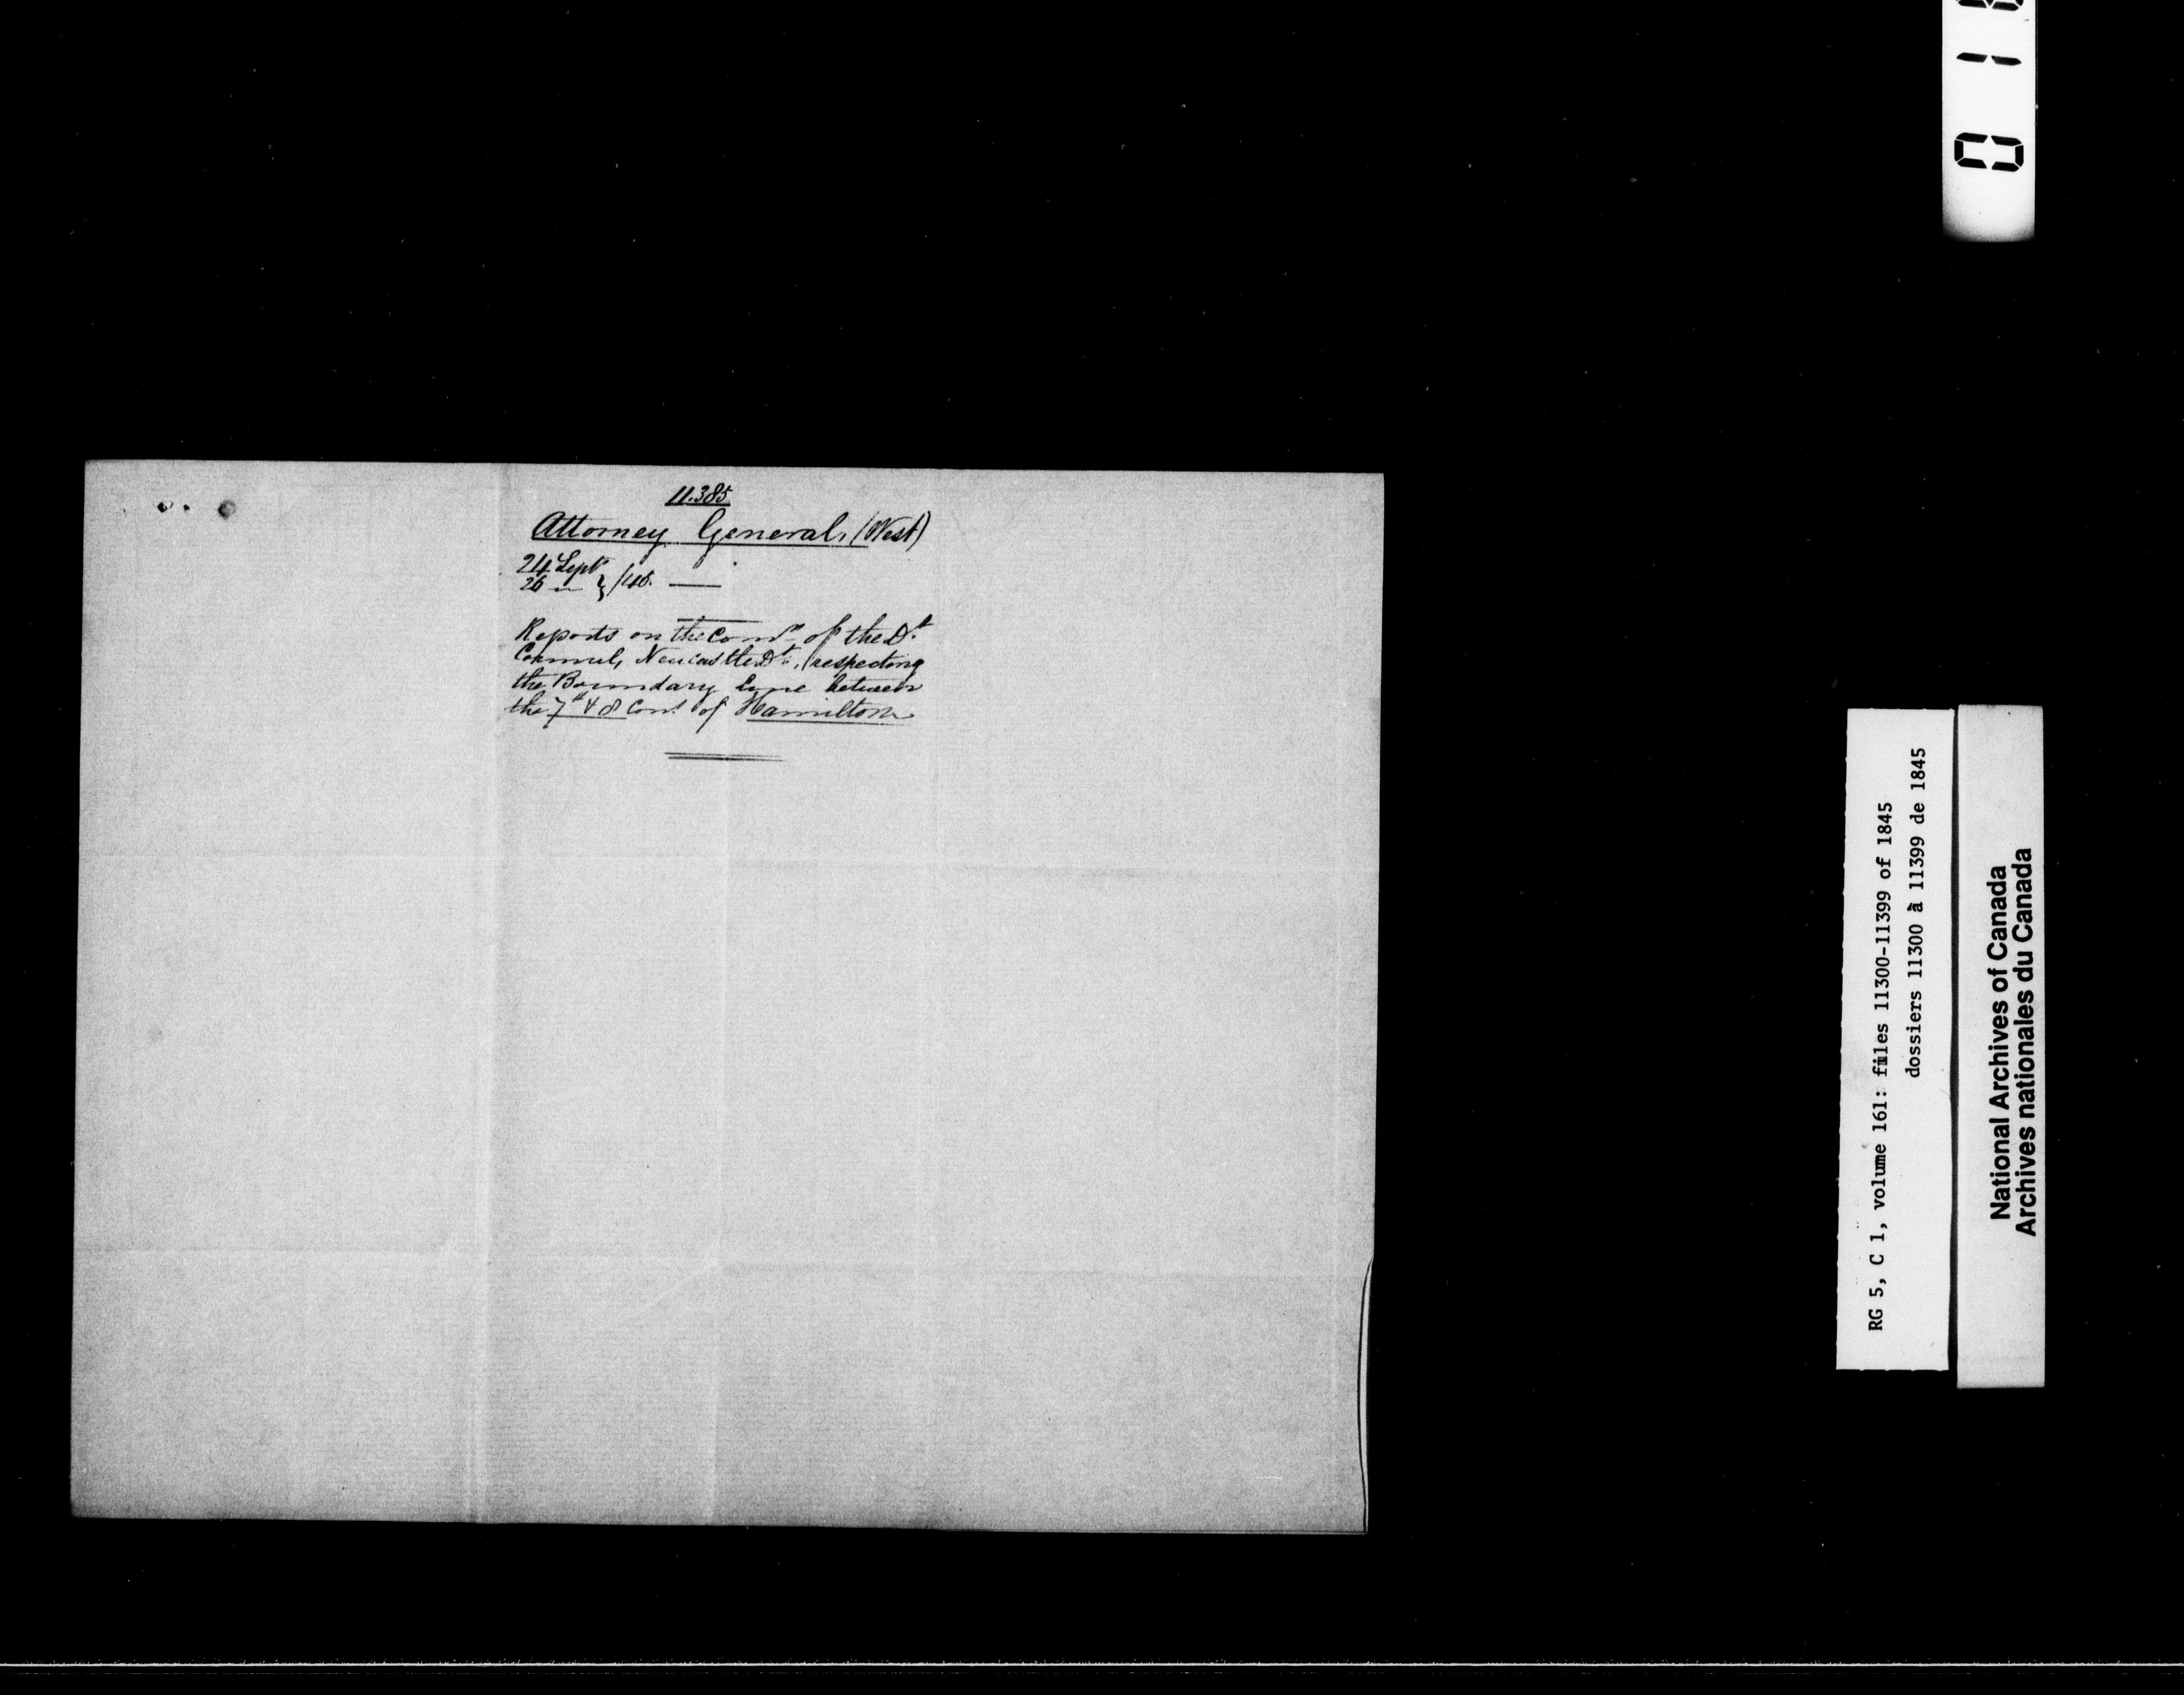 11.385
Attorney General, (West)
24 Sept
26 " } /45. —
Reports on the Comn of the Dt
Council, Newcastle Dt, respecting
the Boundary line between
the 7th & 8 Cons of Hamilton
RG 5, C 1, volume 161: files 11300-11399 of 1845
dossiers 11300 à 11399 de 1845
National Archives of Canada
Archives nationales du Canada